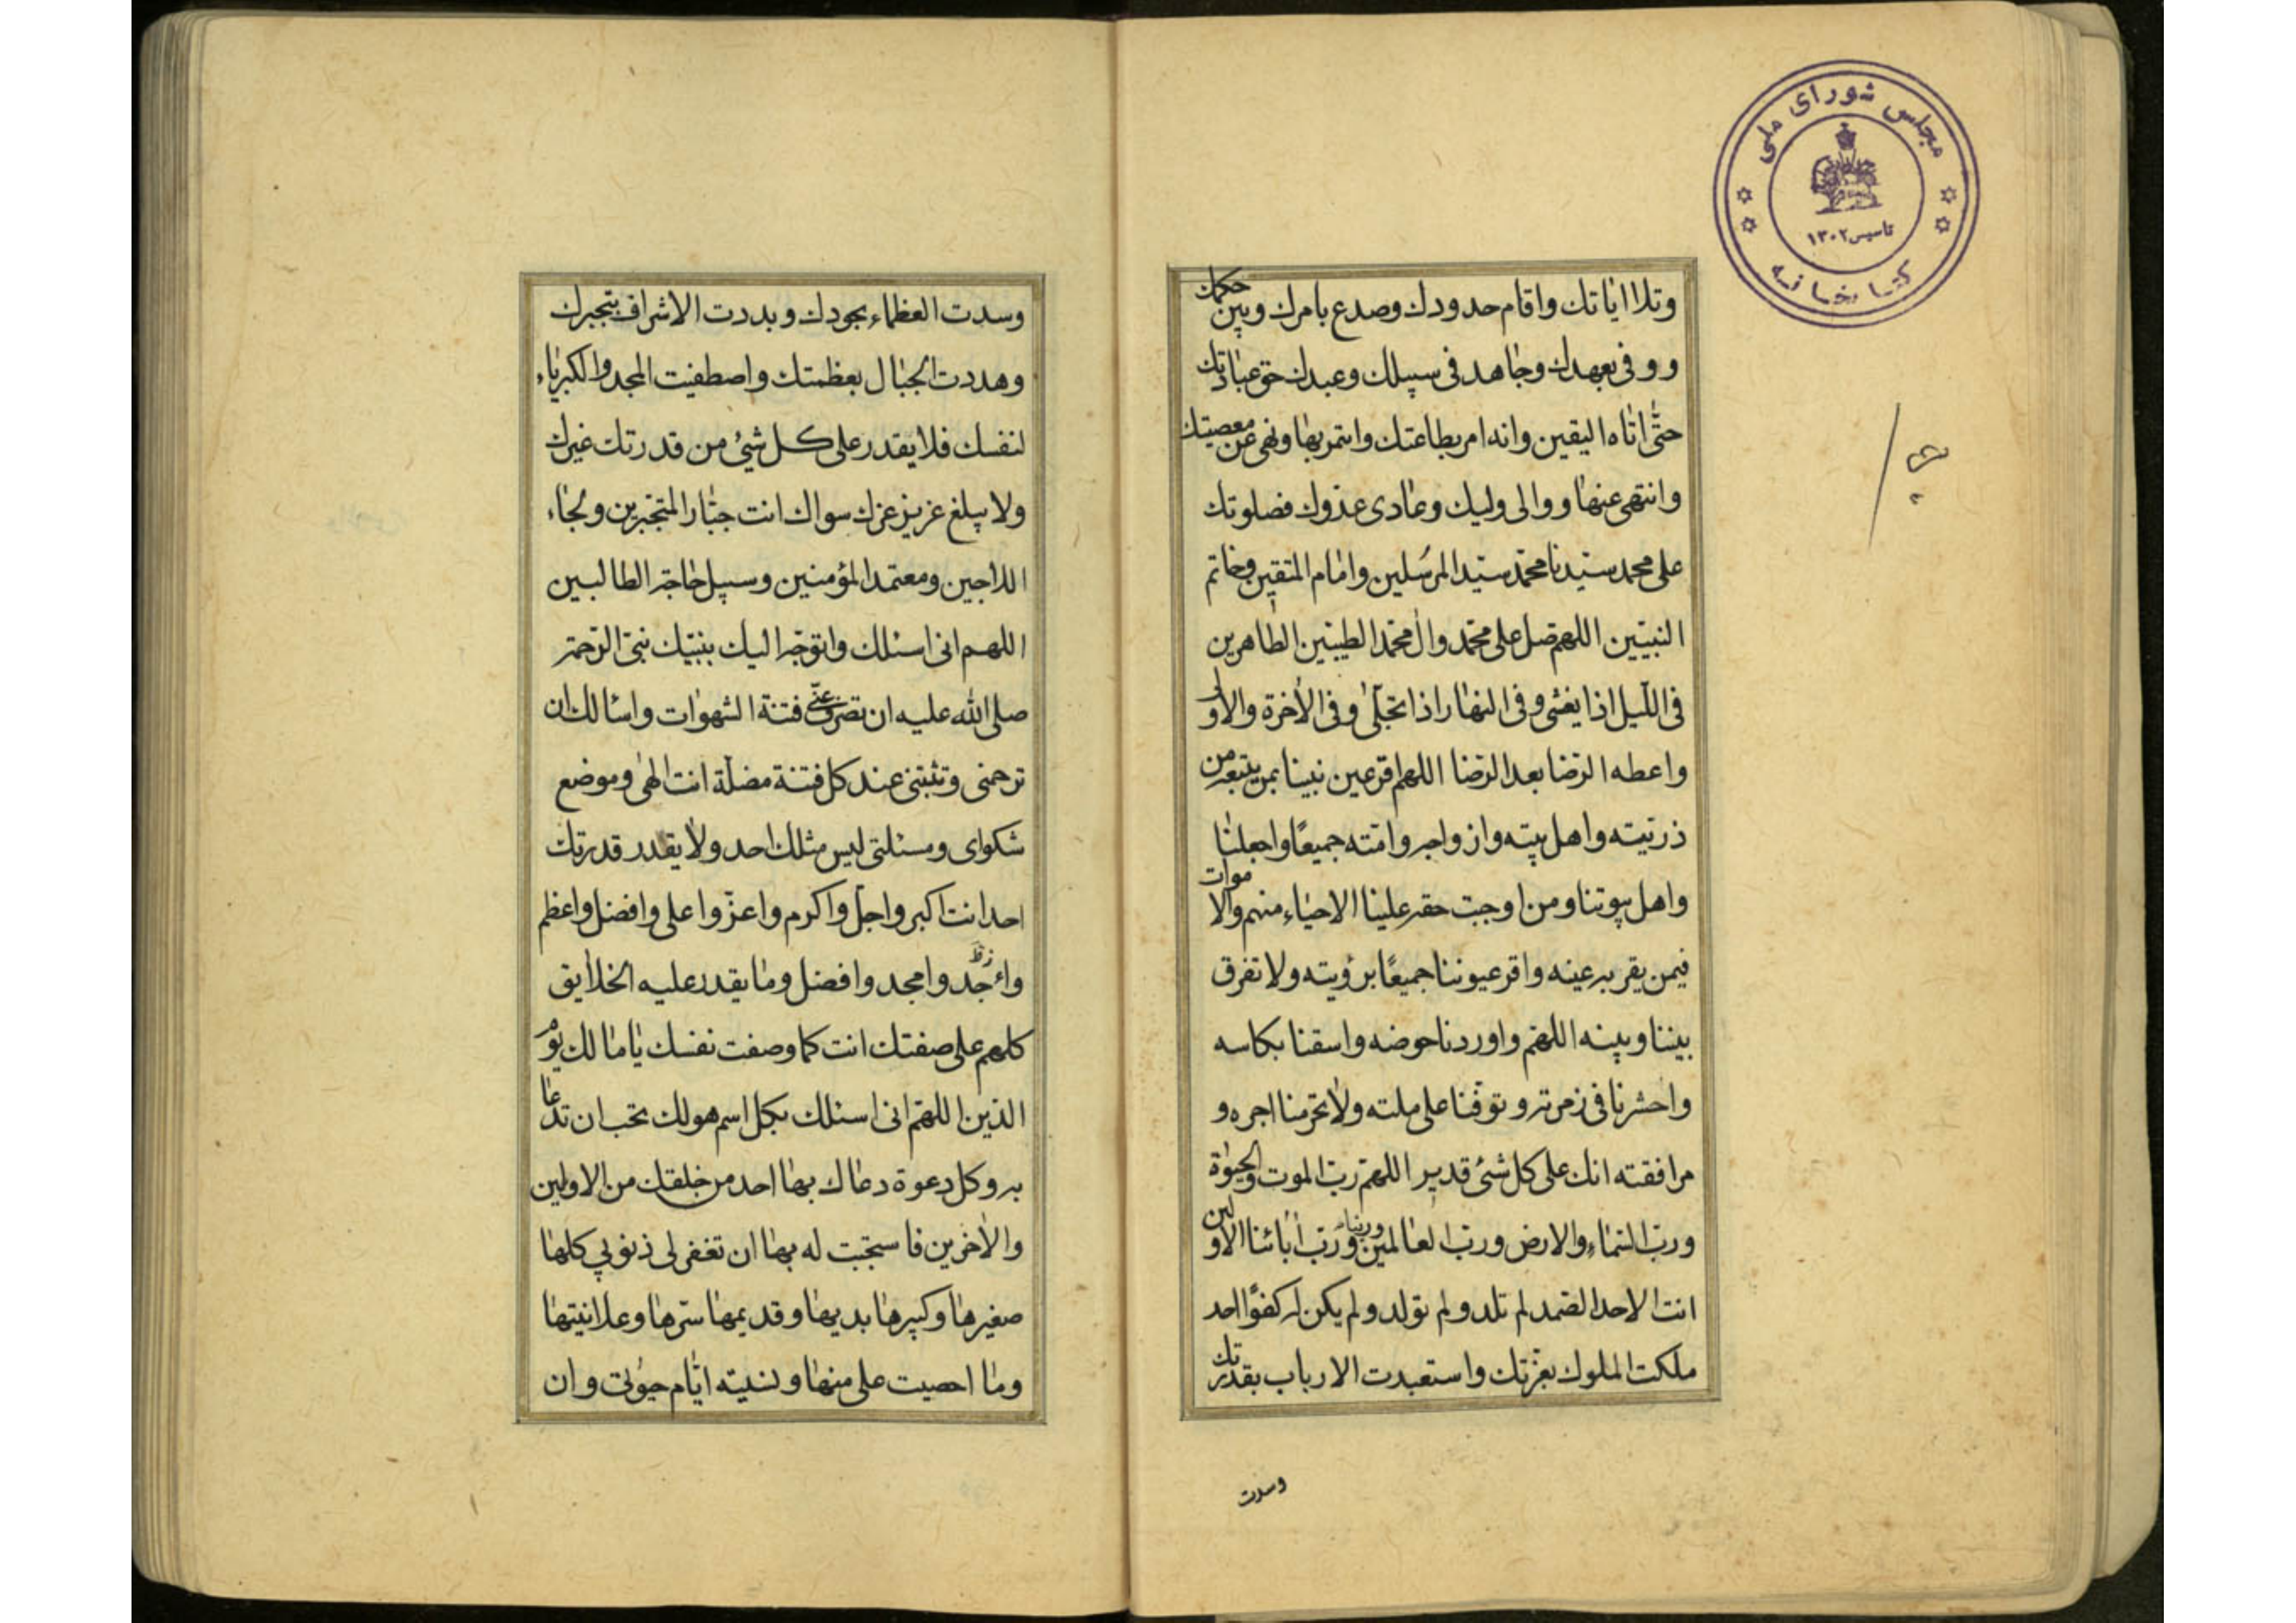 مجلس شورای ملی
تاسیس ۱۳۰۲
کتابخانه
وتلا ایاتك واقام حدودك وصدع بامرك وبین حکمك
و وفی بعهدك وجاهد فی سبیلك وعبدك حق عبادتك
حتّی اتاه الیقین وانه امر بطاعتك وائتمر بها ونهی عن معصیتك
وانتهی عنها و والی ولیك وعادی عدوك فصلوتك
علی محمد سیّدنا محمّد سیّد المرسلین وامام المتقین وخاتم
النبیّین اللهم صل علی محمّد وال محمّد الطیبین الطاهرین
فی اللّیل اذا یغشی وفی النهار اذا تجلّی وفی الاخرة والاولی
واعطه الرّضا بعد الرّضا اللهم اقر عین نبینا بمن یتبعه من
ذریّته واهل بیته وازواجه وامّته جمیعًا واجعلنا
واهل بیوتنا ومن اوجبت حقه علینا الاحیاء منهم والاموات
فیمن یقر به عینه واقر عیوننا جمیعًا برؤیته ولا تفرق
بیننا وبینه اللهم واوردنا حوضه واسقنا بکاسه
واحشرنا فی زمرته و توفّنا علی ملته ولا تحرمنا اجره و
مرافقته انك علی کل شئ قدیر اللهمّ ربّ الموت والحیوة
وربّ السّماء والارض وربّ العالمین وربنا وربّ ابائنا الاولین
انت الاحد الصّمد لم تلد ولم تولد ولم یکن له کفوًا احد
ملکت الملوك بعزّتك واستعبدت الارباب بقدرتك
وسدت
وسدت العظماء بجودك وبددت الاشراف بتجبرك
وهددت الجبال بعظمتك واصطفیت المجد والکبریاء
لنفسك فلا یقدر علی کل شئ من قدرتك غیرك
ولا یبلغ عزیز عزك سواك انت جبّار المتجبرین ولجاء
اللاجین ومعتمد المؤمنین وسبیل حاجة الطالبین
اللهم انی اسئلك واتوجّه الیك بنبیّك نبیّ الرّحمة
صلی الله علیه ان تصرف عنّی فتنة الشهوات واسالك ان
ترحمنی وتثبتنی عند کل فتنة مضلّة انت الهی وموضع
شکوای ومسئلتی لیس مثلك احد ولا یقدر قدرتك
احد انت اکبر واجلّ واکرم واعزّ واعلی وافضل واعظم
وامجد وافضل وما یقدر علیه الخلایق
کلهم علی صفتك انت کما وصفت نفسك یا مالك یوم
الدّین اللهمّ انی اسئلك بکل اسم هو لك تحب ان تدعا
به وکل دعوة دعاك بها احد من خلقك من الاولین
والاخرین فاستجبت له بها ان تغفر لی ذنوبی کلها
صغیرها وکبیرها بدیها وقدیمها سرّها وعلانیتها
وما احصیت علی منها ونسیته ایّام حیوتی وان